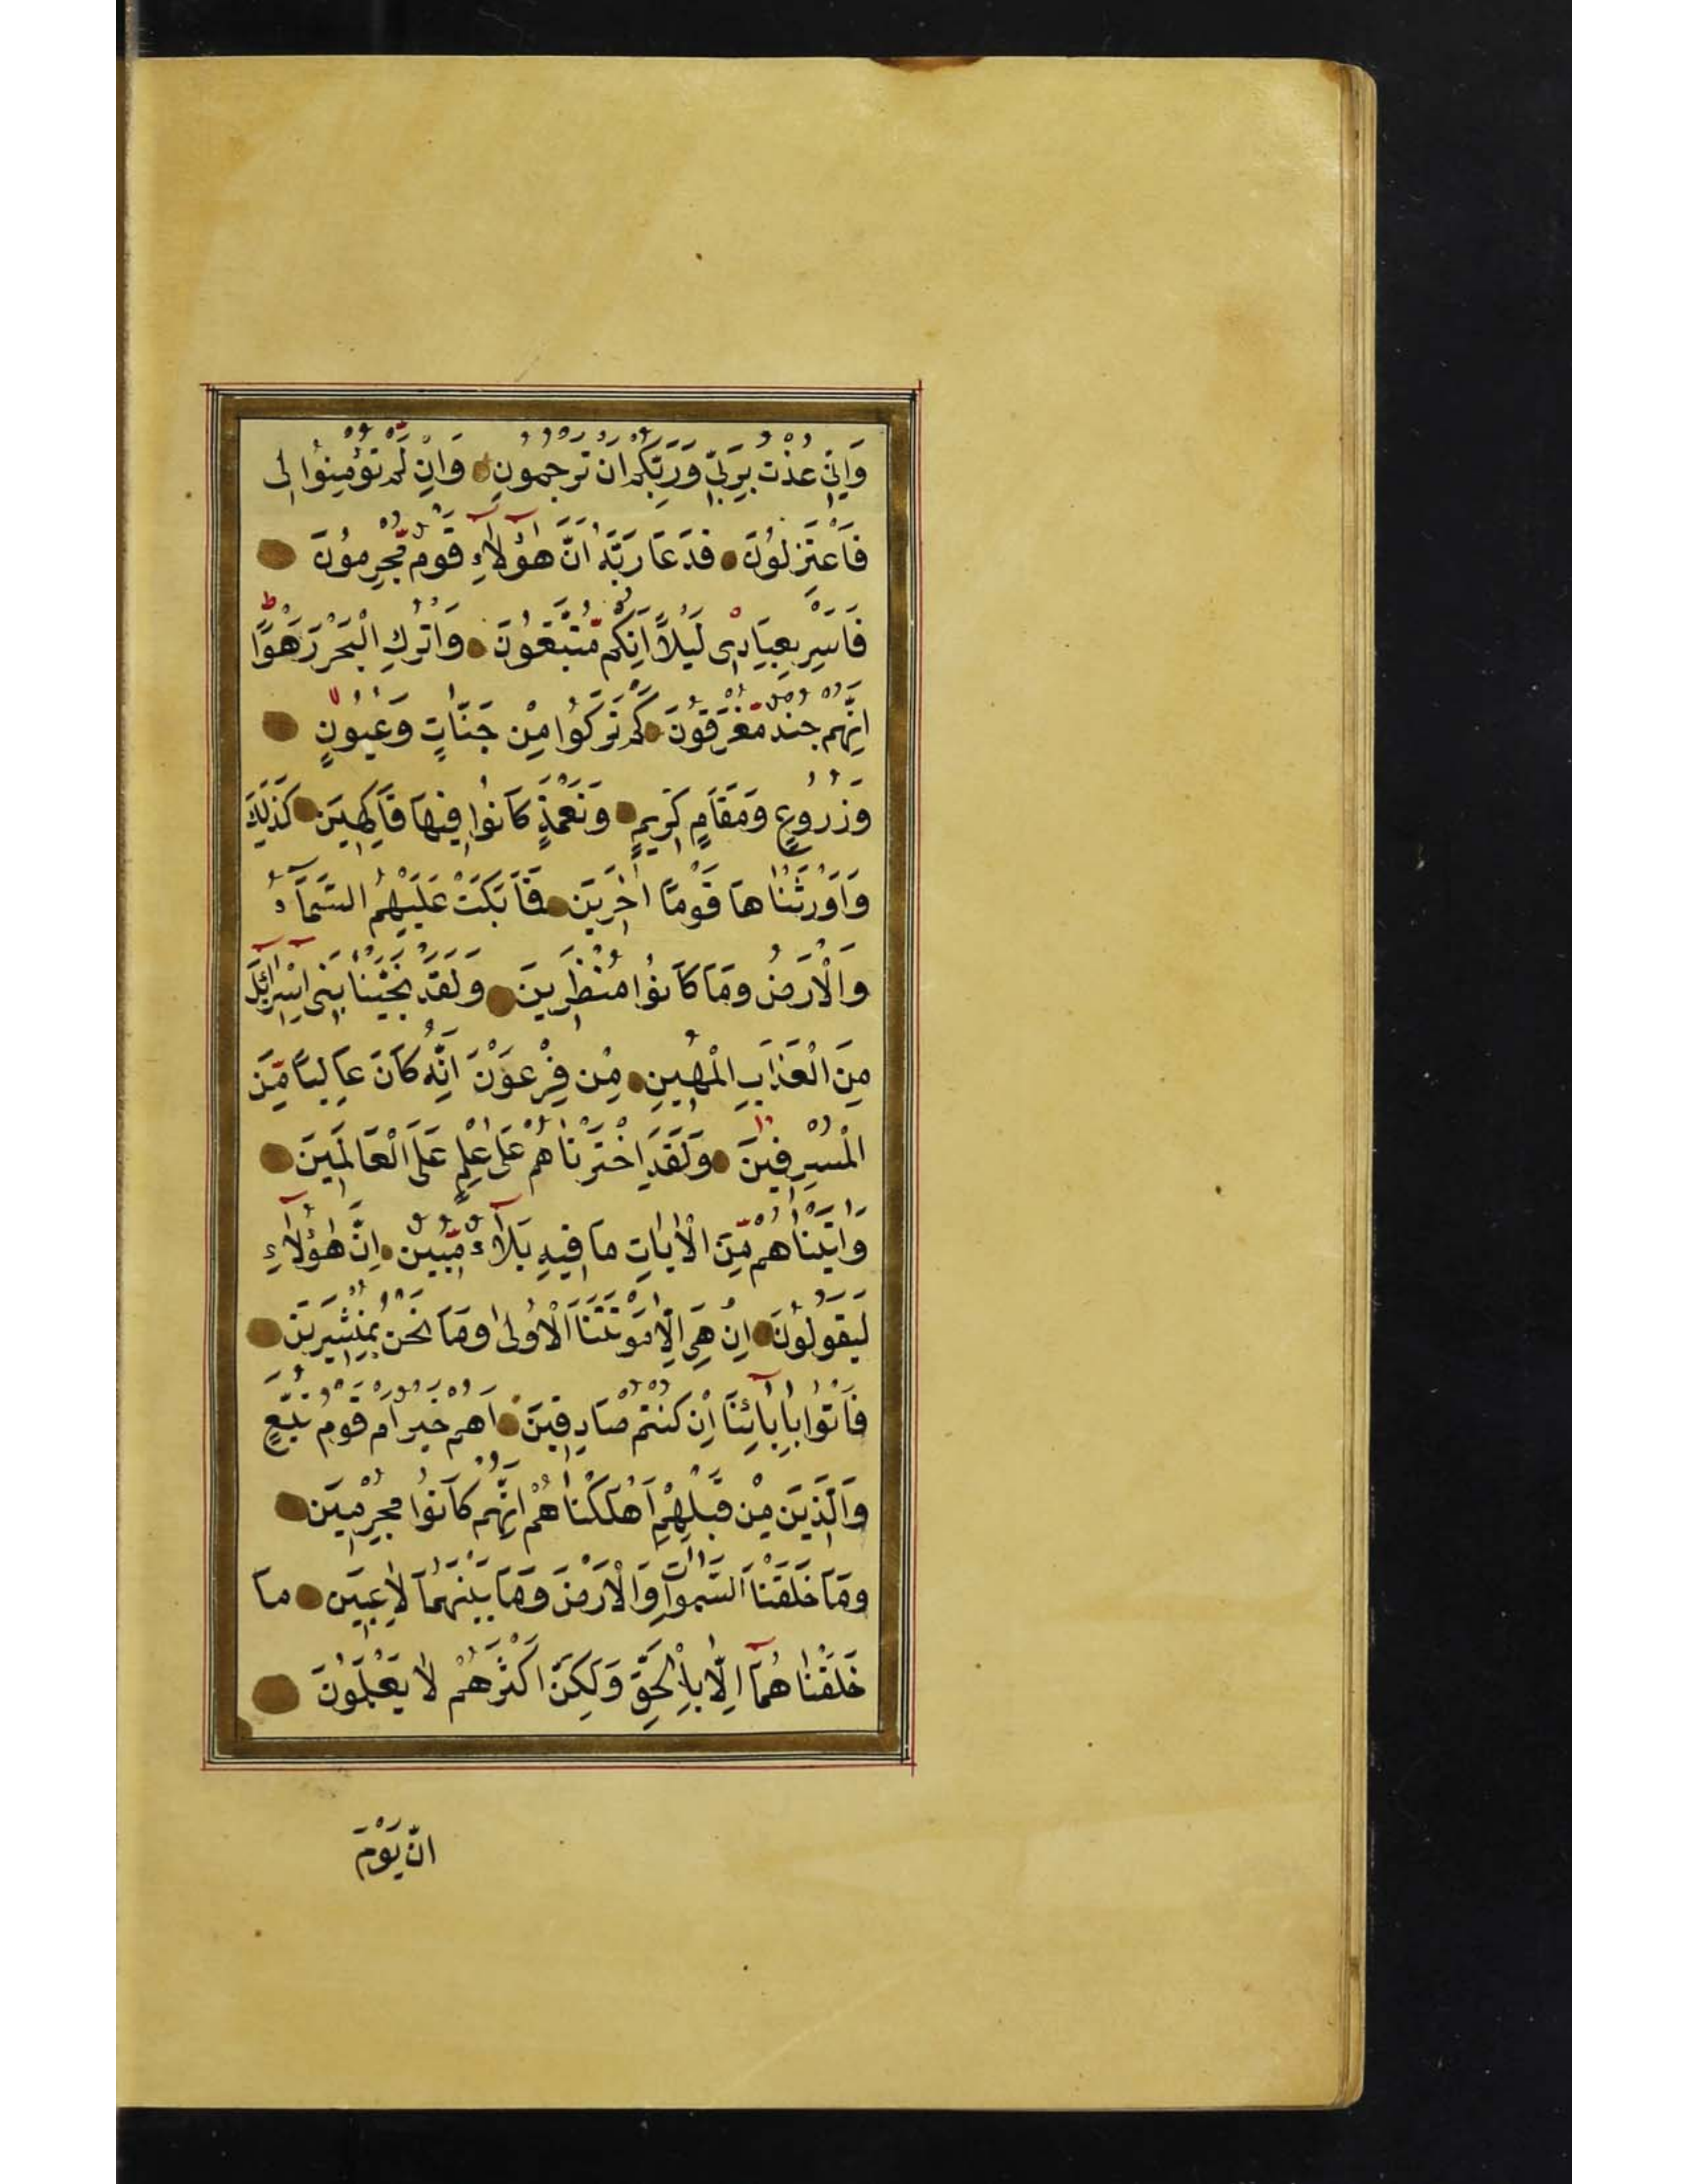 وَاِنِّي عُذْتُ بِرَبِّي وَرَبِّكُمْ اَنْ تَرْجُمُونِ وَاِنْ لَمْ تُؤْمِنُوا لِى
فَاعْتَزِلُونَ فَدَعَا رَبَّهُ اَنَّ هٰٓؤُلَآءِ قَوْمٌ مُّجْرِمُونَ
فَاَسْرِ بِعِبَادِى لَيْلًا اِنَّكُمْ مُّتَّبَعُونَ وَاتْرُكِ الْبَحْرَ رَهْوًا
اِنَّهُمْ جُنْدٌ مُّغْرَقُونَ كَمْ تَرَكُوا مِنْ جَنَّاتٍ وَعُيُونٍ
وَزُرُوعٍ وَمَقَامٍ كَرِيمٍ وَنَعْمَةٍ كَانُوا فِيهَا فَاكِهِينَ كَذٰلِكَ
وَاَوْرَثْنَاهَا قَوْمًا اٰخَرِينَ فَمَا بَكَتْ عَلَيْهِمُ السَّمَآءُ
وَالْاَرْضُ وَمَا كَانُوا مُنْظَرِينَ وَلَقَدْ نَجَّيْنَا بَنِى اِسْرَآئِلَ
مِنَ الْعَذَابِ الْمُهِينِ مِنْ فِرْعَوْنَ اِنَّهُ كَانَ عَالِيًا مِّنَ
الْمُسْرِفِينَ وَلَقَدِ اخْتَرْنَاهُمْ عَلَى عِلْمٍ عَلَى الْعَالَمِينَ
وَاٰتَيْنَاهُمْ مِّنَ الْاٰيَاتِ مَا فِيهِ بَلَآءٌ مُّبِينٌ اِنَّ هٰٓؤُلَآءِ
لَيَقُولُونَ اِنْ هِىَ اِلَّا مَوْتَتُنَا الْاُولٰى وَمَا نَحْنُ بِمُنْشَرِينَ
فَاْتُوا بِاٰبَآئِنَا اِنْ كُنْتُمْ صَادِقِينَ اَهُمْ خَيْرٌ اَمْ قَوْمُ تُبَّعٍ
وَالَّذِينَ مِنْ قَبْلِهِمْ اَهْلَكْنَاهُمْ اِنَّهُمْ كَانُوا مُجْرِمِينَ
وَمَا خَلَقْنَا السَّمٰوَاتِ وَالْاَرْضَ وَمَا بَيْنَهُمَا لَاعِبِينَ مَا
خَلَقْنَاهُمَآ اِلَّا بِالْحَقِّ وَلَكِنَّ اَكْثَرَهُمْ لَا يَعْلَمُونَ
انّ يَوْمَ